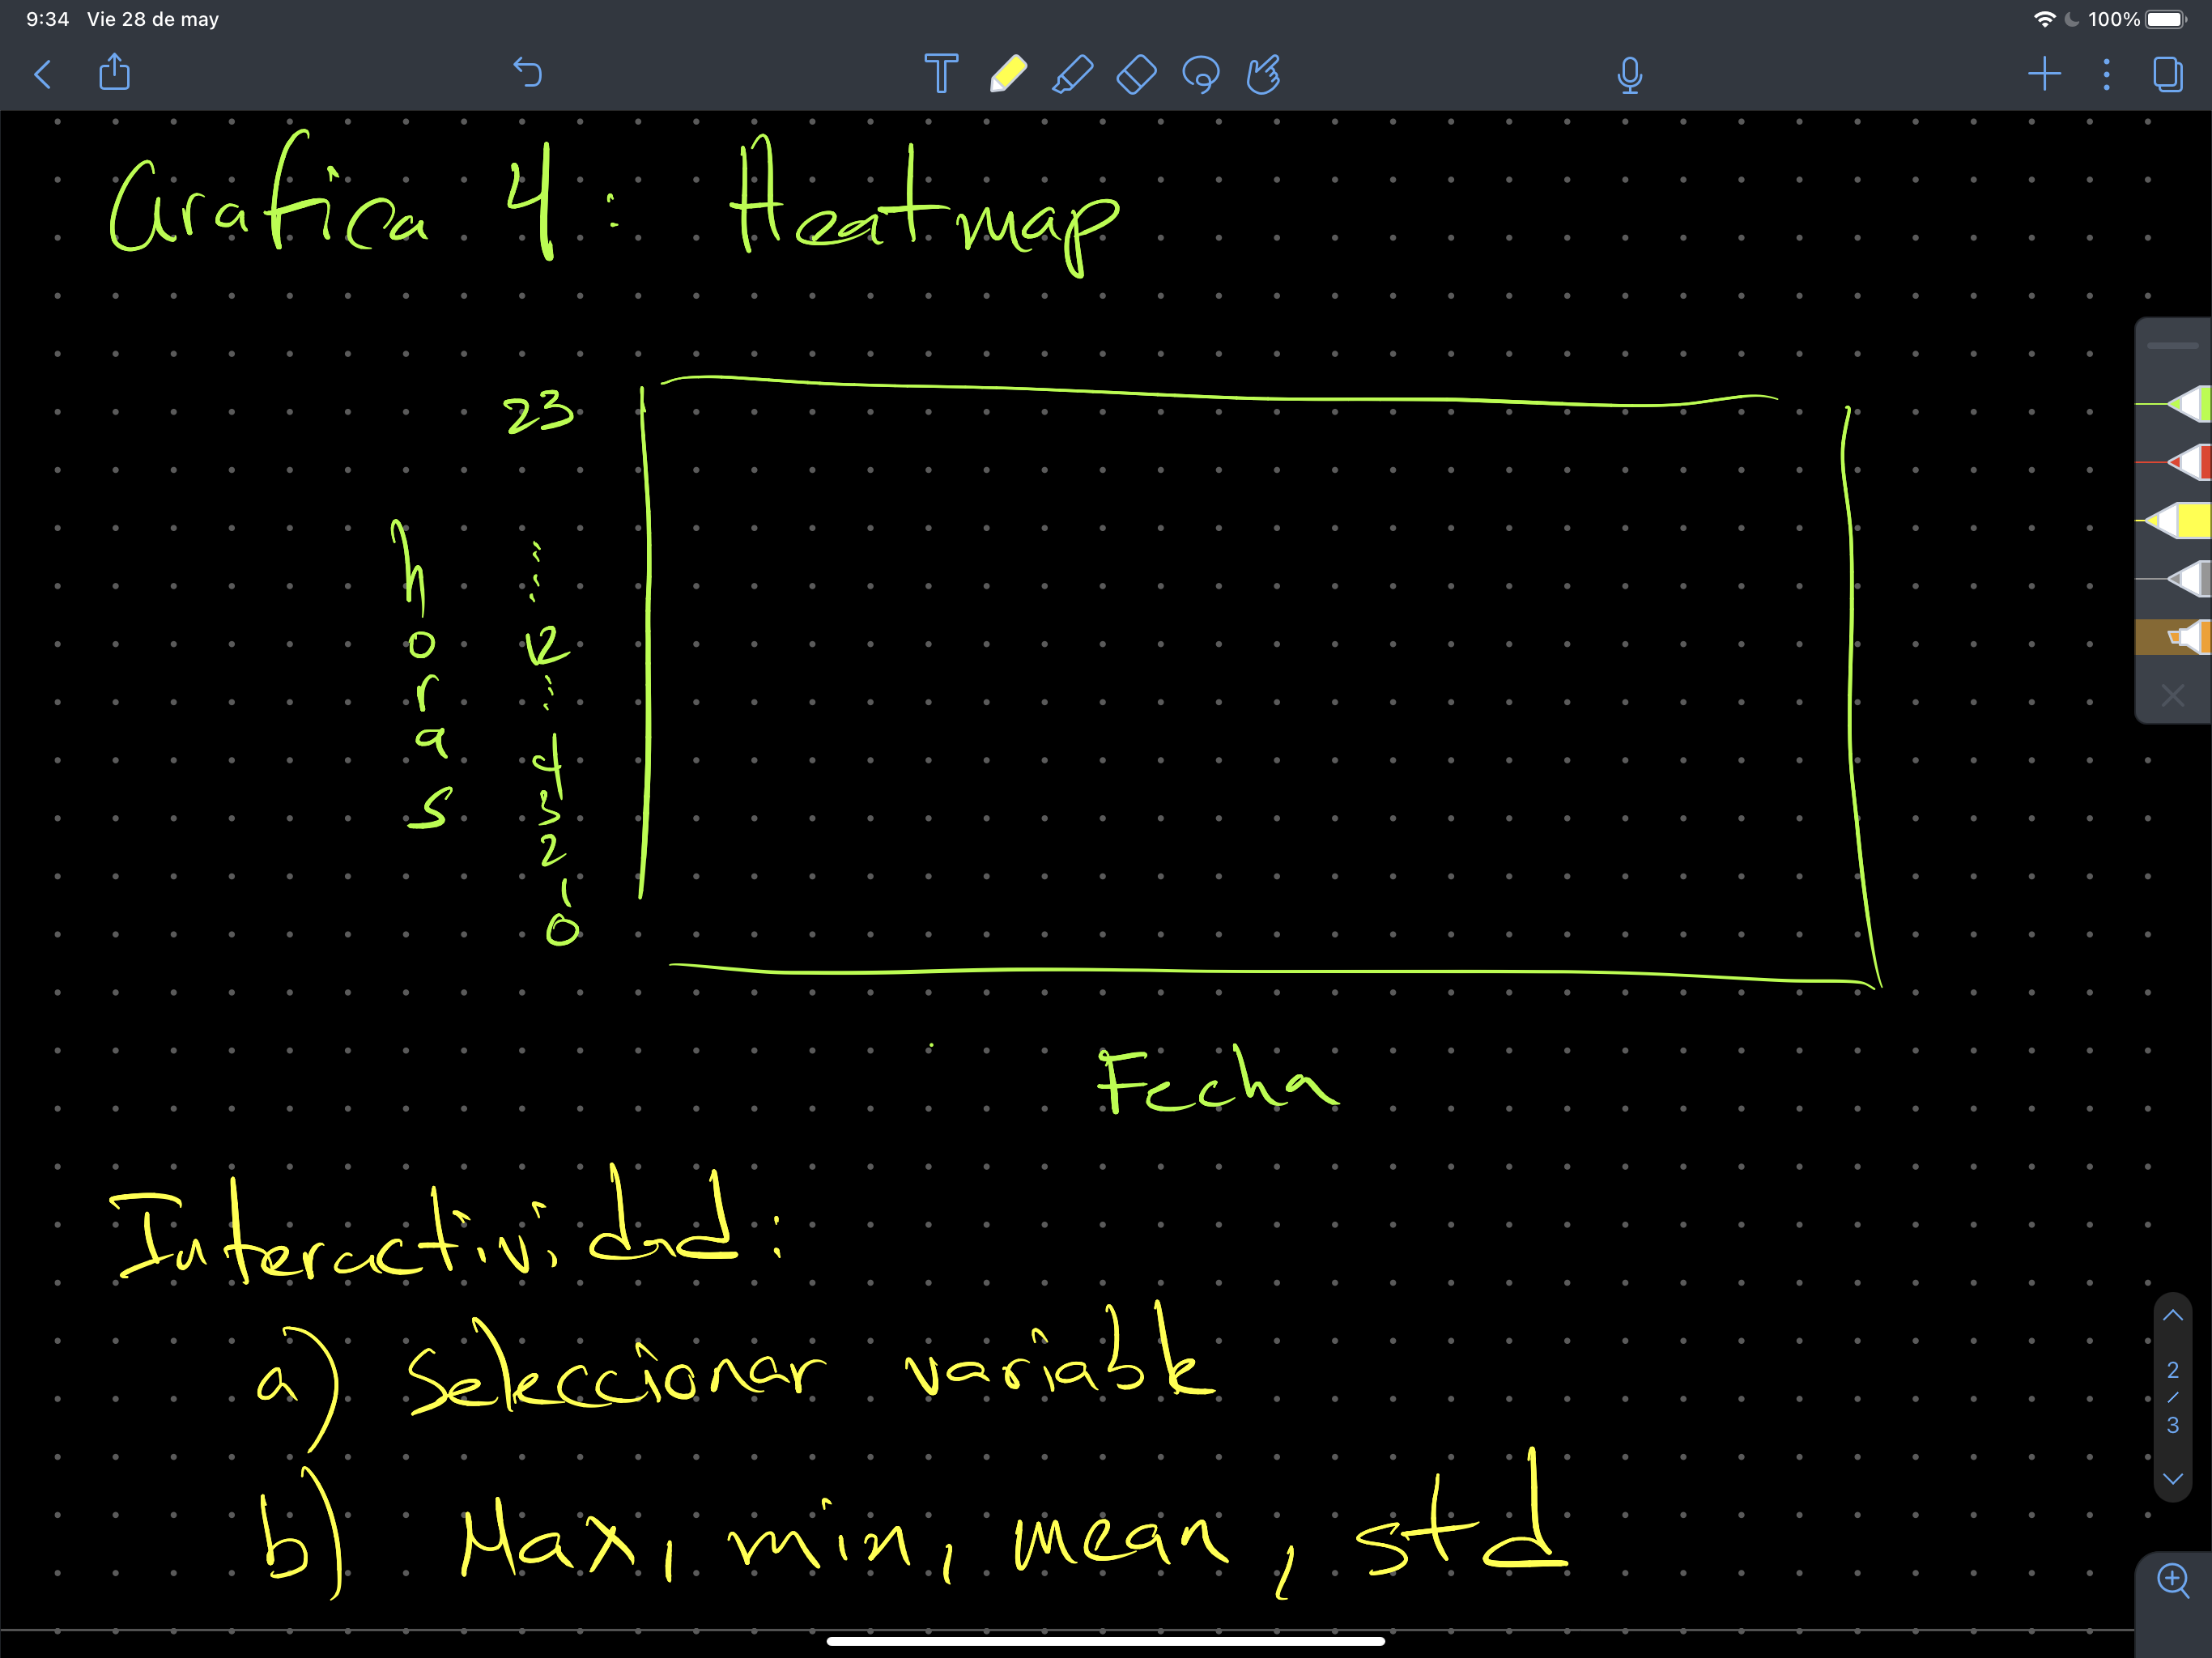 9:34 Vie 28 de may 100%
Grafica 4: Heatmap
23
⋮
12
⋮
4
3
2
1
0
horas
Fecha
Interactividad:
a) Seleccionar variable
b) Max, min, mean, std
2
/
3